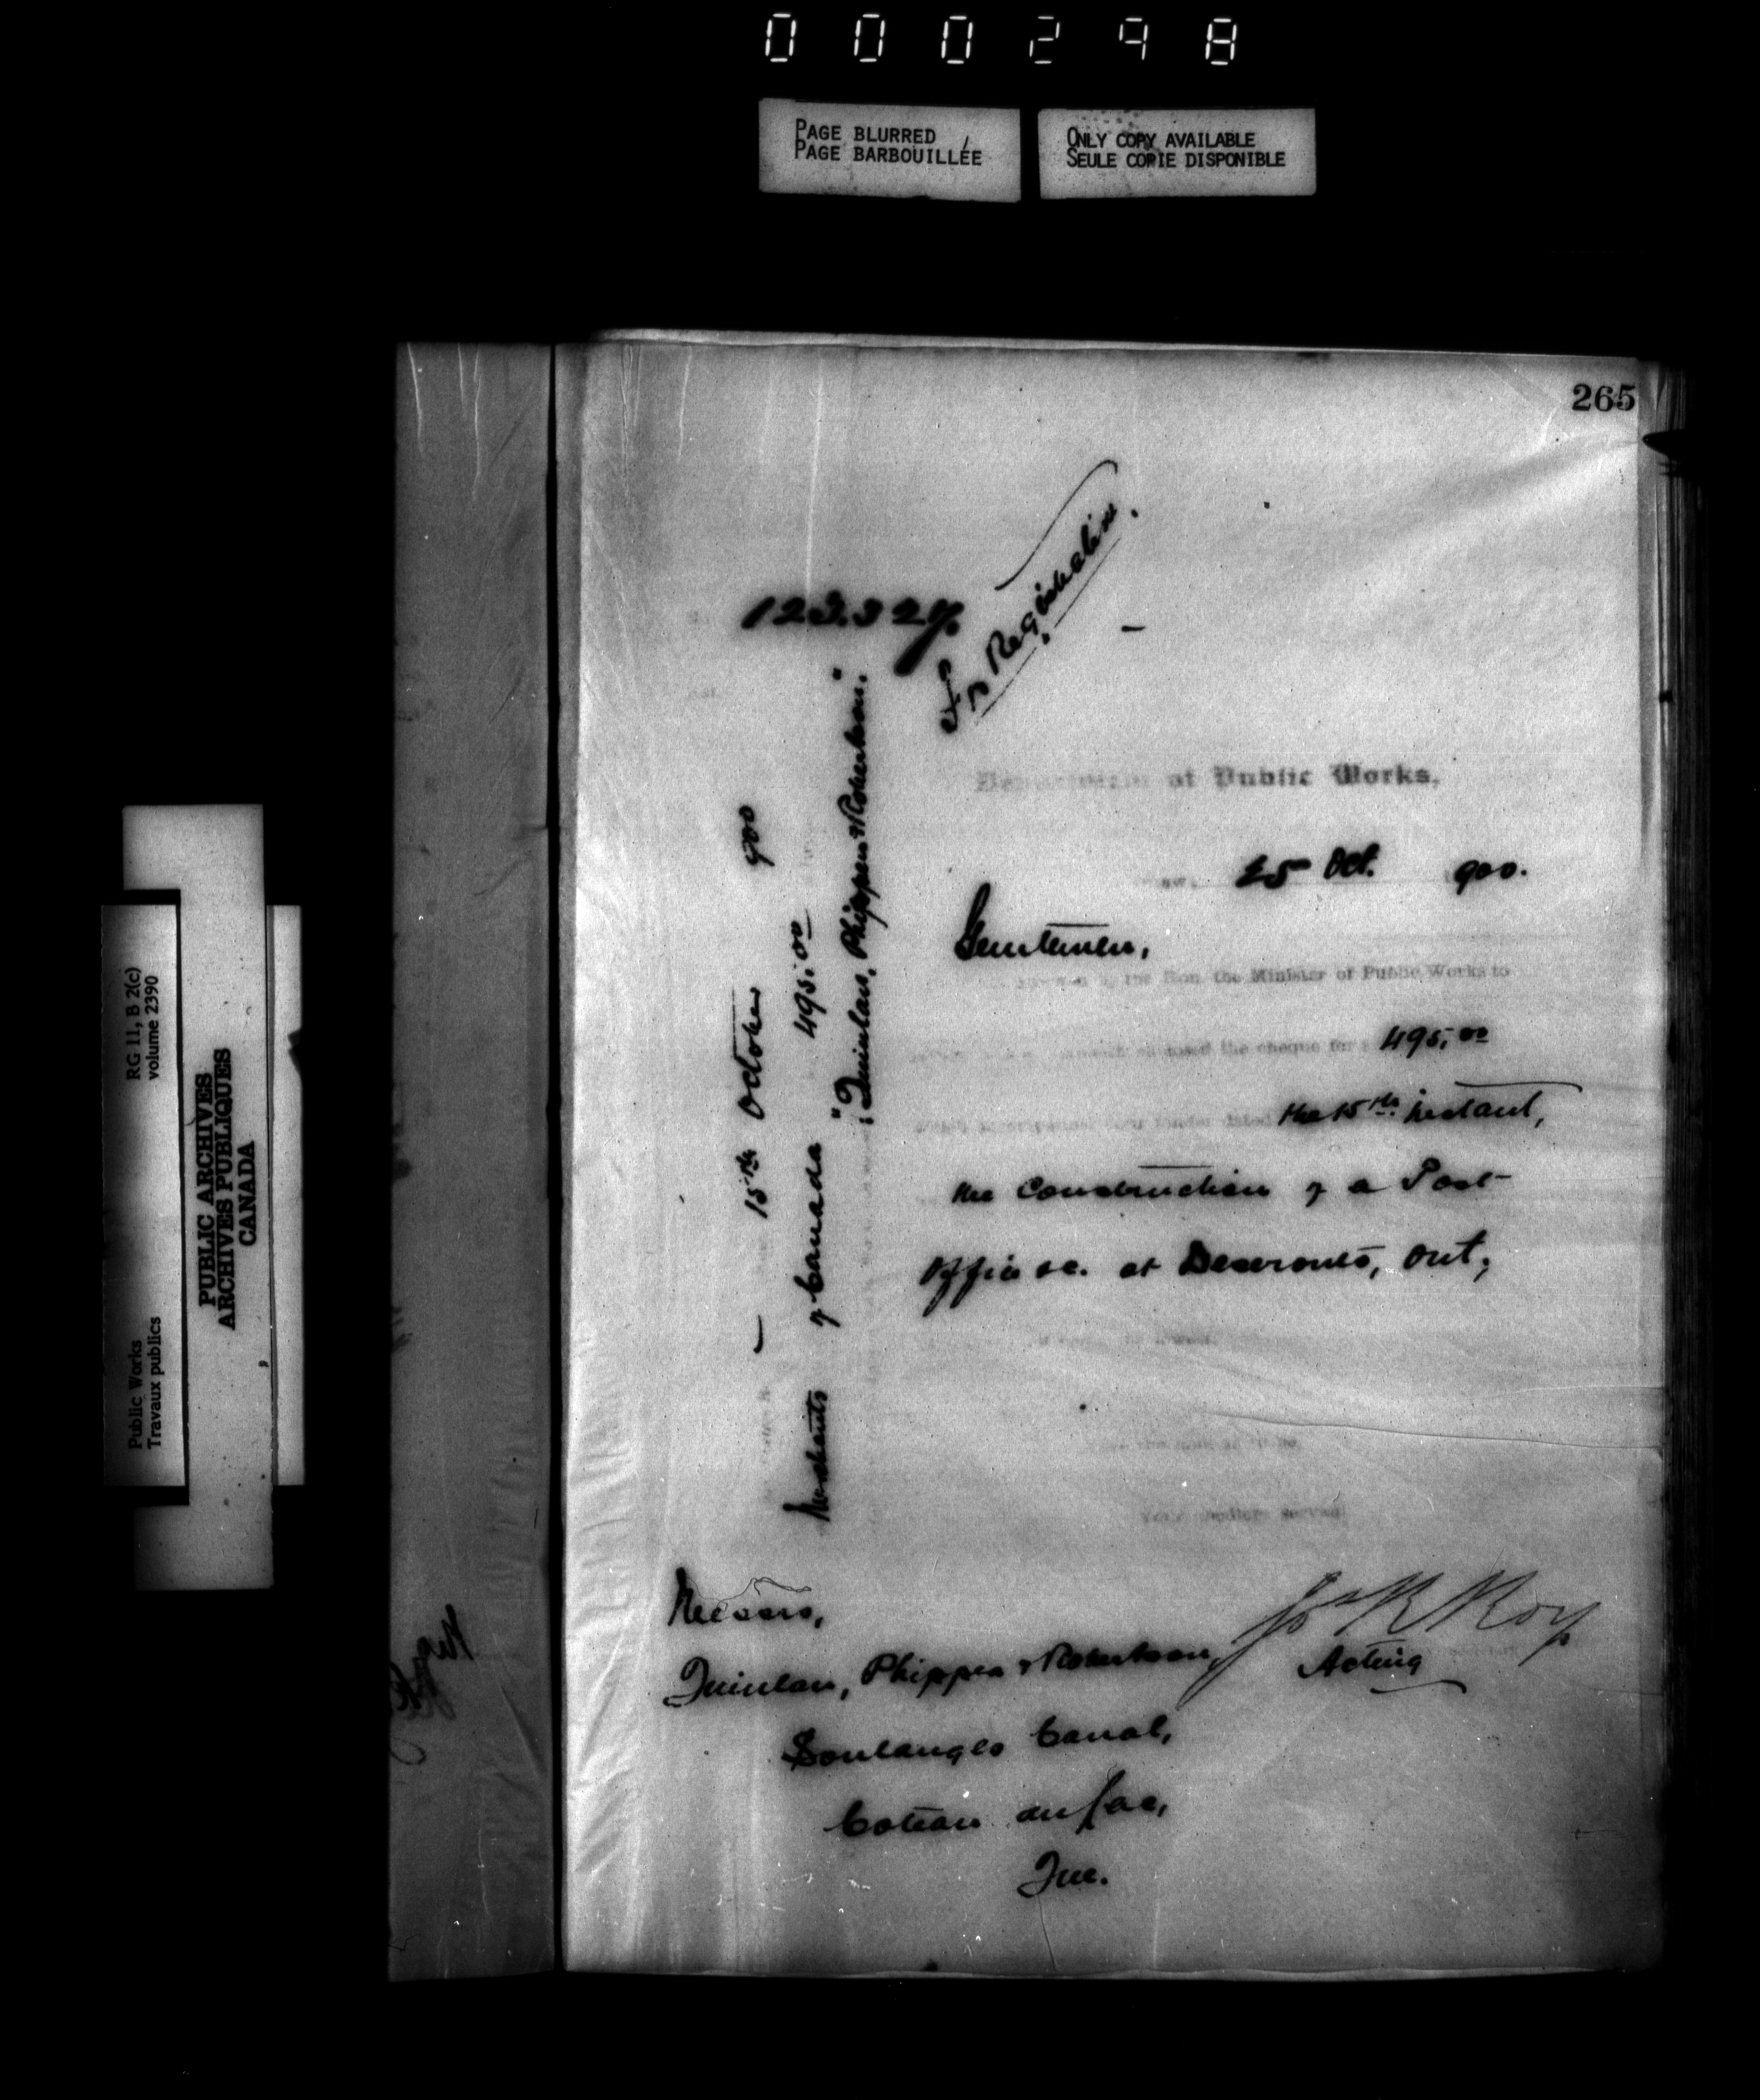 000298
PAGE BLURRED
PAGE BARBOUILLÉE
ONLY COPY AVAILABLE
SEULE COPIE DISPONIBLE
265
123.327.
For Registration.
Department of Public Works,
25 Oct. 900.
Gentlemen,
by the Hon. the Minister of Public Works to
enclosed the cheque for $ 495.00
which accompanied your tender dated the 15th instant,
the Construction of a Post
Office &c. at Deseronto, Ont,
Your obedient servant
Jos R Roy
Acting
Messrs,
Quinlan, Phippen & Robertson,
Soulanges Canal,
Coteau du Lac,
Que.
15th October 900
Merchants of Canada 495.00
"Quinlan, Phippen & Robertson."
RG 11, B 2(c)
volume 2390
PUBLIC ARCHIVES
ARCHIVES PUBLIQUES
CANADA
Public Works
Travaux publics